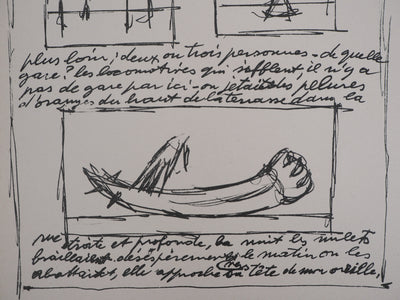 plus loin, deux ou trois personnes - de quelle
gare? les locomotives qui sifflent, il n'y a
pas de gare par ici - on jetait des pelures
d'oranges du haut de la terrasse dans la
rue étroite et profonde, la nuit les mulets
braillaient désespérément le matin on les
abattait, elle approche sa tête de mon oreille,